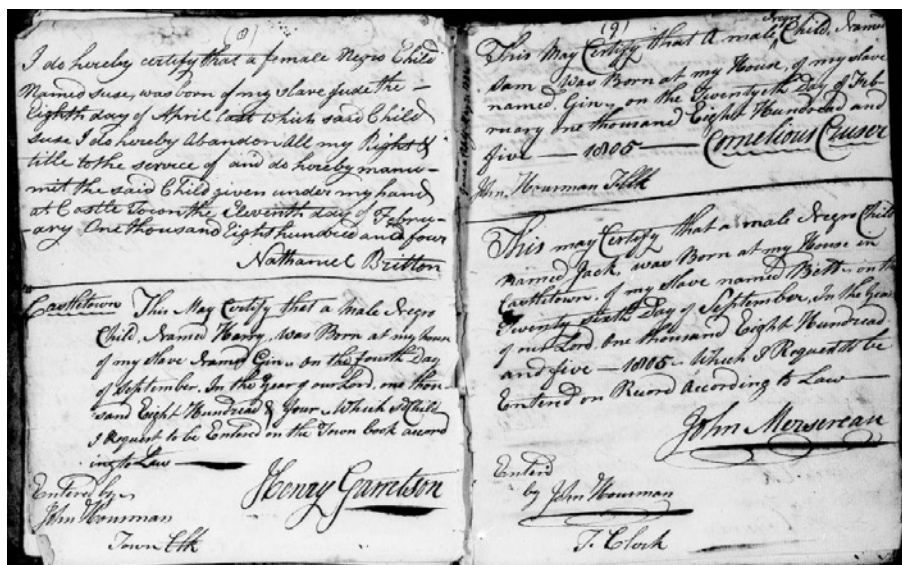 (8)
I do hereby certify that a female Negro Child
Named Suse, was born of my slave Jude the —
Eighth day of April last which said Child
Suse I do hereby Abandon All my Right &
title to the service of and do hereby manu-
mit the said Child given under my hand
at Castle Town the Eleventh day of Febru-
-ary One thousand Eight hundred and four
Nathaniel Britton
Castletown This May Certify that a Male Negro
Child, Named Harry, was Born at my house
of my slave Named Gin on the fourth Day
of September, In the Year of our Lord, one thou
sand Eight Hundread & four Which Sd Child
I Request to be Entered in the Town book accord
ing to Law —
Henry Garretson
Entered by
John Housman
Town Clk
(9)
This May Certify that A male Negro Child, Named
Sam was Born at my House, of my slave
named, Gin, on the Twentyeth Day of Feb-
ruary one thousand Eight Hundread and
five — 1805 — Cornelious Cruser
John Housman T Clk
This may Certify that a male Negro Child
named Jack, was Born at my House in
Castletown, of my slave named Bett on the
Twenty sixth Day of September, In the Year
of our Lord, one thousand Eight Hundread
and five — 1805 — Which I Request to be
Entered on Record According to Law —
John Mersereau
Enterd
by John Housman
T. Clerk